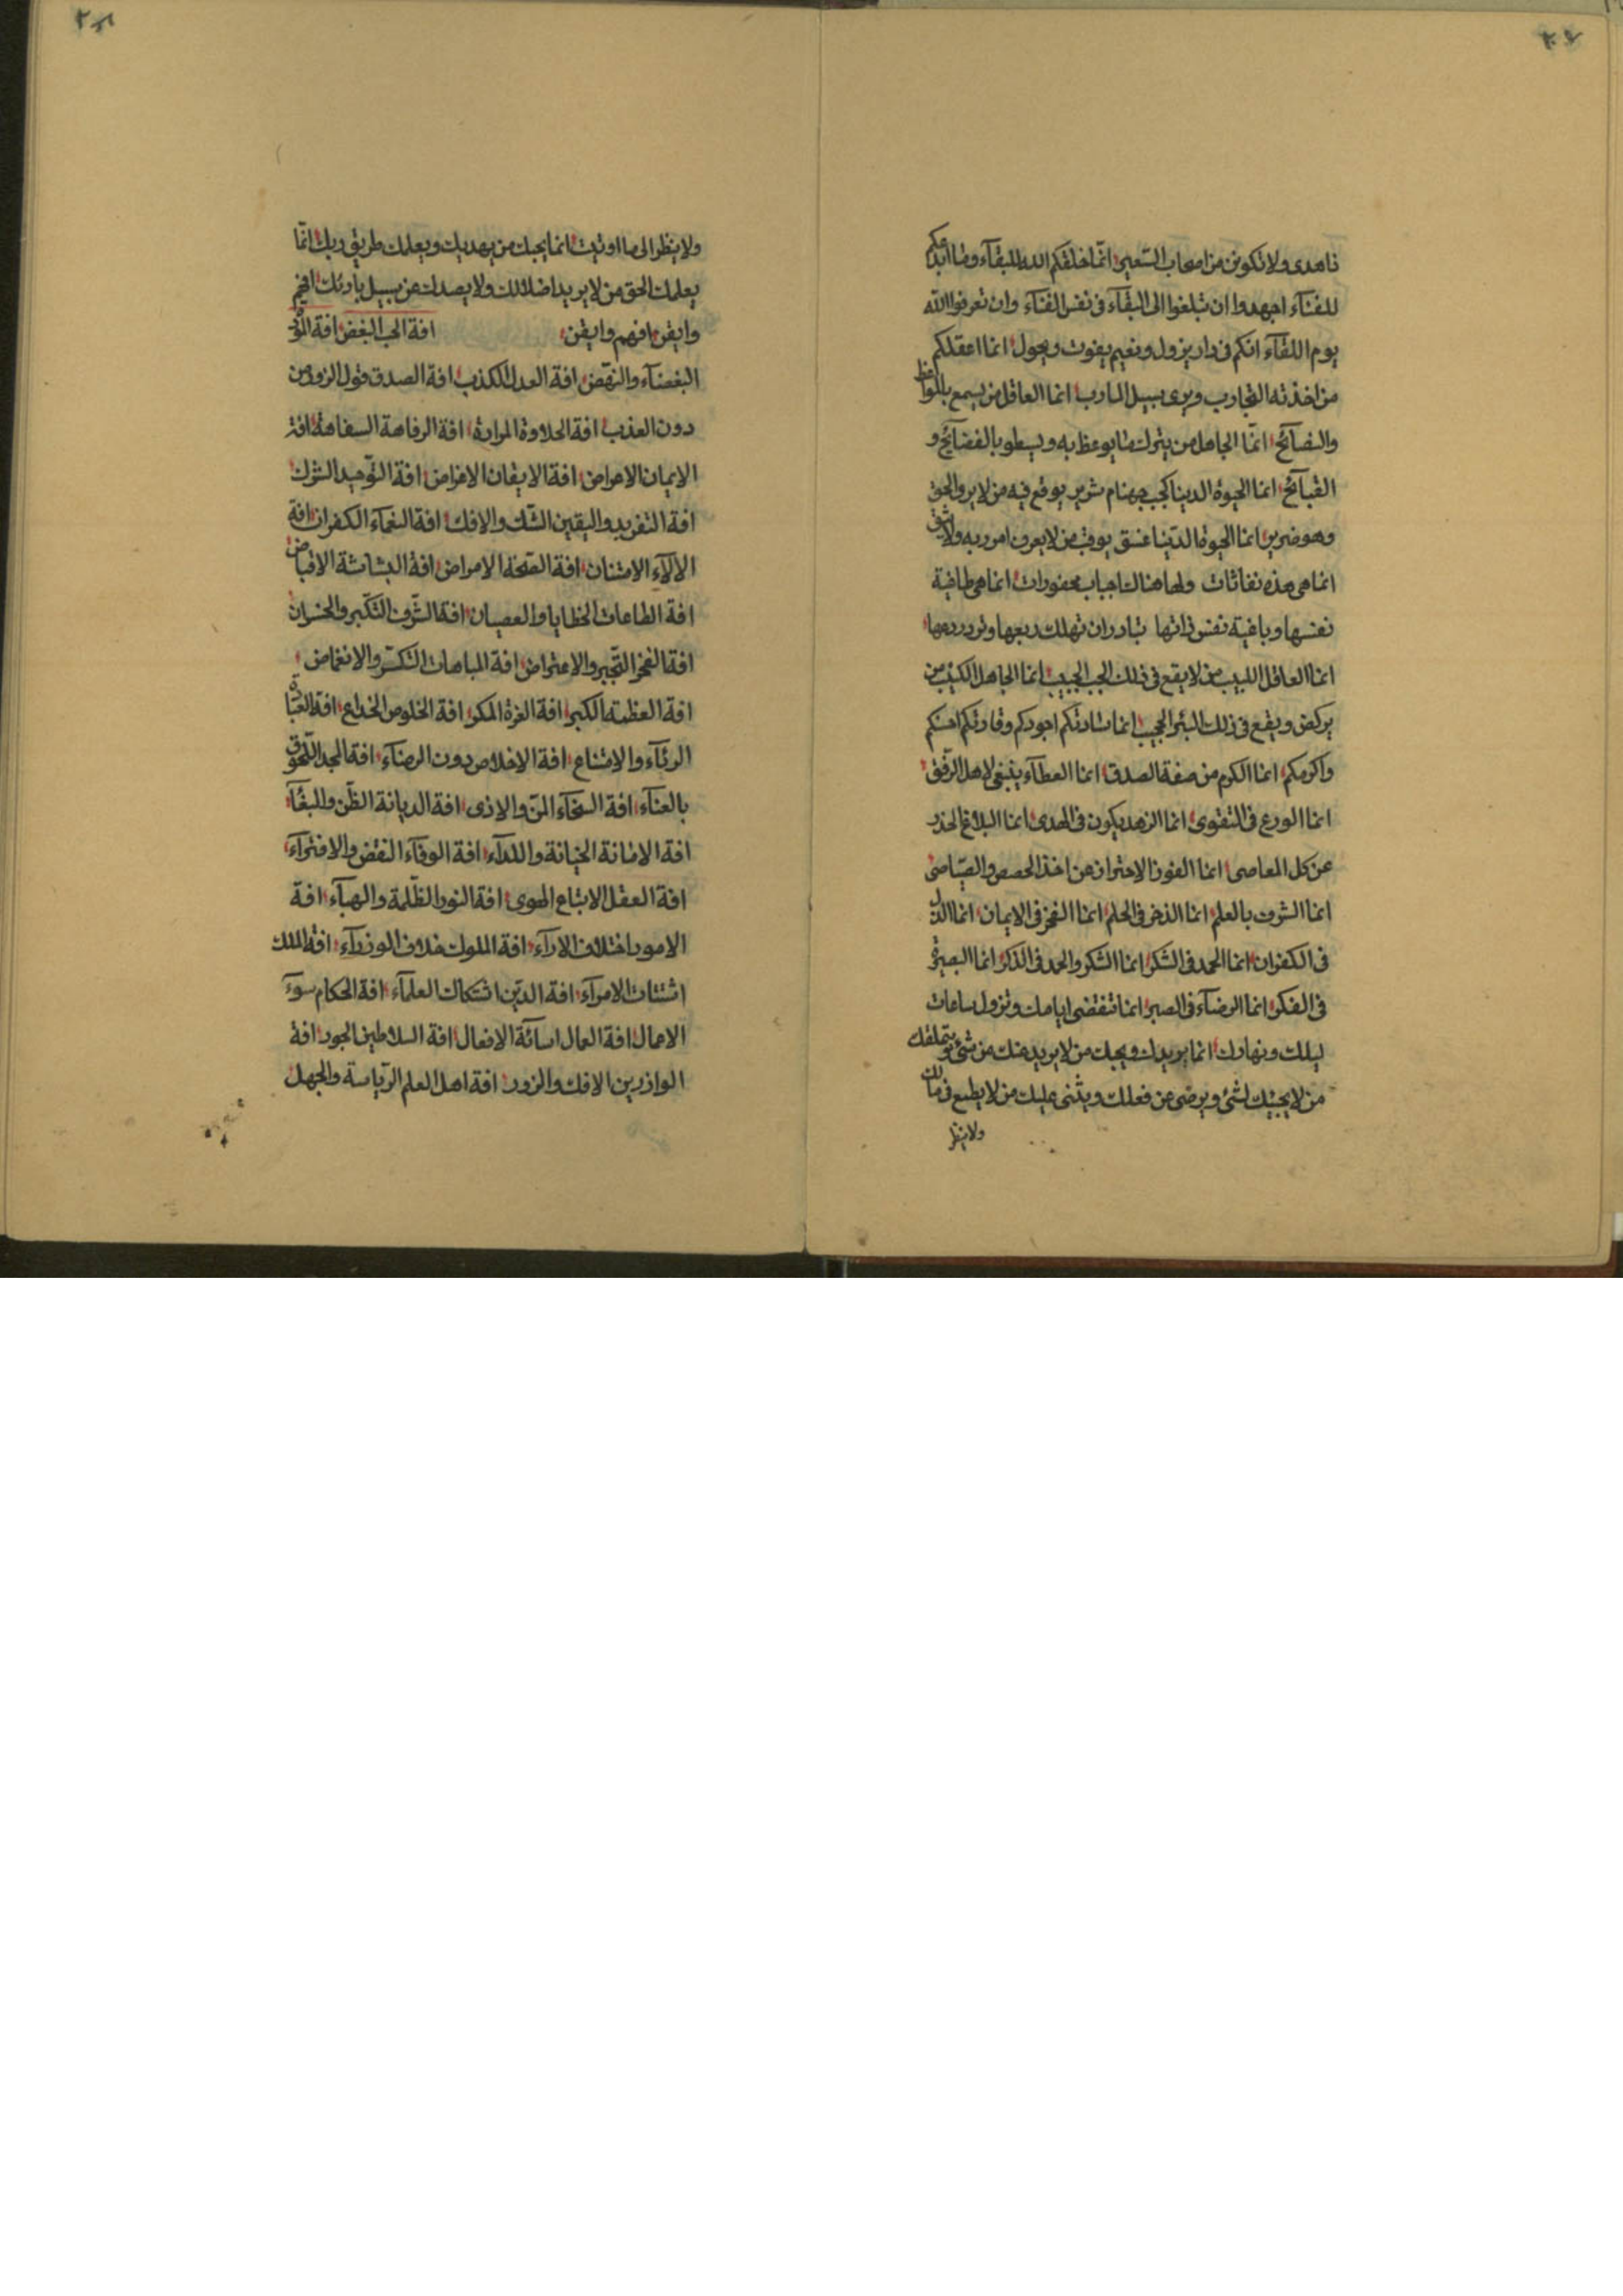 تاهدى ولا تكونن من اصحاب السّعير انّما خلقكم الله للبقآء وما ابدعكم
للفنآء اجهدوا ان تبلغوا الى البقآء فى نفس الفنآء وان تعرفوا الله
يوم اللقآء انكم فى دار يزول ونعيم يفوت ويحول انما اعقلكم
من اخذته التجارب ويرى سبيل المارب انما العاقل من يسمع بالمواعظ
والنصآئح انّما الجاهل من يترك ما يوعظ به ويسطو بالفضآئح و
القبآئح انما الحيوة الدنيا كجب جهنام شرير يوقع فيه من لا يرو الحق
وهو ضرير انما الحيوة الدّنيا غسق يوقب من لا يعرف امر ربه ولا
انما هى هذه نفاثات ولها هناك اجباب محفورات انما هى طاغية
نفسها وباغية نفس ذاتها تبادر ان تهلك ربعها وتورد
انما العاقل اللبيب من لا يقع فى ذلك الجب الجبيب انما الجاهل الكئيب من
يركض ويقع فى ذلك البئر الجبيب انما سادتكم اجودكم وقادتكم احسنكم
واكرمكم انما الكرم من صفة الصدق انما العطآء ينبغى لاهل الرّفق
انما الورع فى التقوى انما الزهد يكون فى الهدى انما البلاغ الحذر
عن كل المعاصى انما الفوز الاحتراز عن اخذ الحصص والصّياصى
انما الشرف بالعلم انما الذخر فى الحلم انما الفخر فى الايمان انما الذل
فى الكفران انما المجد فى الشكر انما الشكر والحمد فى الذّكر انما البصيرة
فى الفكر انما الرضآء فى الصبر انما تنقضى ايامك وتزول ساعات
ليلك ونهارك انما يريدك ويحبك من لا يريد منك من شئ ويتملقك
من لا يحبّك لشئ ويرضى عن فعلك ويثنى عليك من لا يطمع فى مالك
ولا ينظر
ولا ينظر الى ما اوتيت انما يحبك من يهديك ويعلمك طريق ربك انّما
يعلمك الحق من لا يريد اضلالك ولا يصدك عن سبيل بارئك افهم
وايقن افهم وايقن افة الحب البغض افة المودّة
البغضآء والنقض افة العدل الكذب افة الصدق قول الزور من
دون العذب افة الحلاوة المرارة افة الرفاهة السفاهة افة
الايمان الاعراض افة الايقان الاغراض افة التّوحيد الشرك
افة التفريد واليقين الشّك والافك افة النعمآء الكفران افة
الالآء الامتنان افة الصّحة الامراض افة البشاشة الاقباض
افة الطاعات الخطايا والعصيان افة الشّرف التكّبر والخسران
افة الفخر التّجبر والاعتراض افة المباهات التكسّر والانغماض
افة العظمة الكبر افة العزة المكر افة الخلوص الخداع افة العبادة
الرئآء والامتناع افة الاخلاص دون الرضآء افة المجد التّعوق
بالعنآء افة السخآء المنّ والاذى افة الديانة الظّن والبغآء
افة الامانة الخيانة والندآء افة الوفآء النقض والافترآء
افة العقل الاتباع الهوى افة النور الظّلمة والهبآء افة
الامور اختلاف الارآء افة الملوك خلاف الوزرآء افة الملك
اشتتات الامرآء افة الدّين اشتكاك العلمآء افة الحكام سوء
الاعمال افة العمال اسآئة الافعال افة السلاطين الجور افة
الوازرين الافك والزور افة اهل العلم الرّياسة والجهل